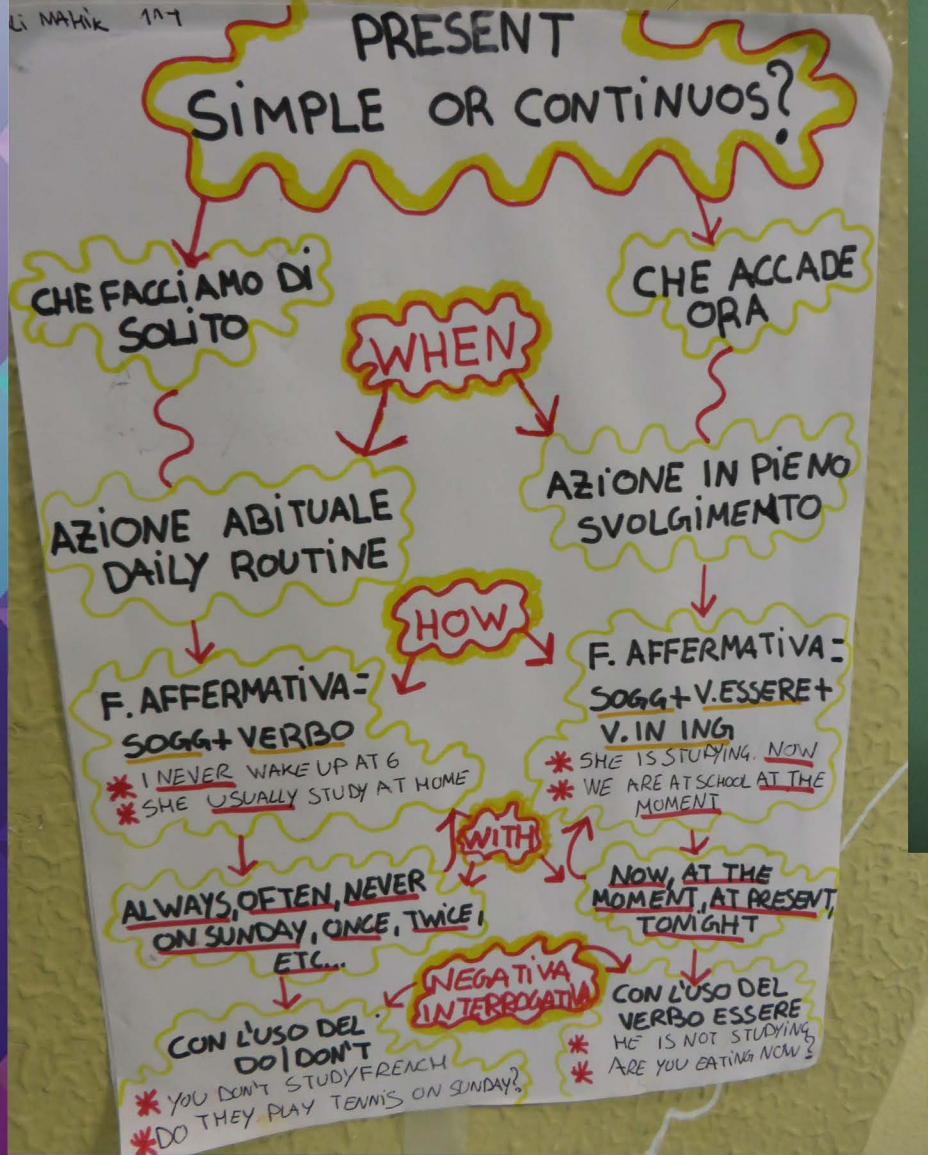 PRESENT
SiMPLE OR CONTiNUOS?
CHE FACCiAMO Di
SOLiTO
CHE ACCADE
ORA
WHEN
AZiONE ABiTUALE
DAiLY ROUTiNE
AZiONE IN PiENO
SVOLGiMENTO
HOW
F. AFFERMATiVA=
SOGG+ VERBO
* I NEVER WAKE UP AT 6
* SHE USUALLY STUDY AT HOME
F. AFFERMATIVA=
SOGG+ V.ESSERE+
V. IN ING
* SHE IS STUDYING. NOW
* WE ARE AT SCHOOL AT THE
MOMENT
WITH
ALWAYS, OFTEN, NEVER
ON SUNDAY, ONCE, TWICE,
ETC...
NOW, AT THE
MOMENT, AT PRESENT,
TONIGHT
NEGATIVA
INTERROGATIVA
CON L'USO DEL
DO/DON'T
* YOU DON'T STUDY FRENCH
* DO THEY PLAY TENNIS ON SUNDAY?
CON L'USO DEL
VERBO ESSERE
* HE IS NOT STUDYING
* ARE YOU EATING NOW?